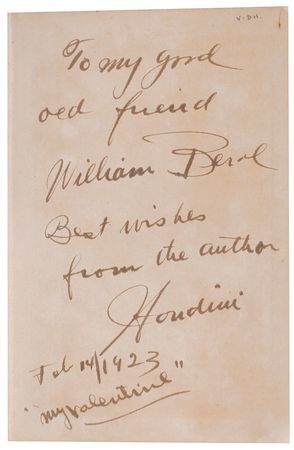 V-D11.
To my good
old friend
William Berol
Best wishes
from the author
Houdini
Feb 14/1923
"my valentine"